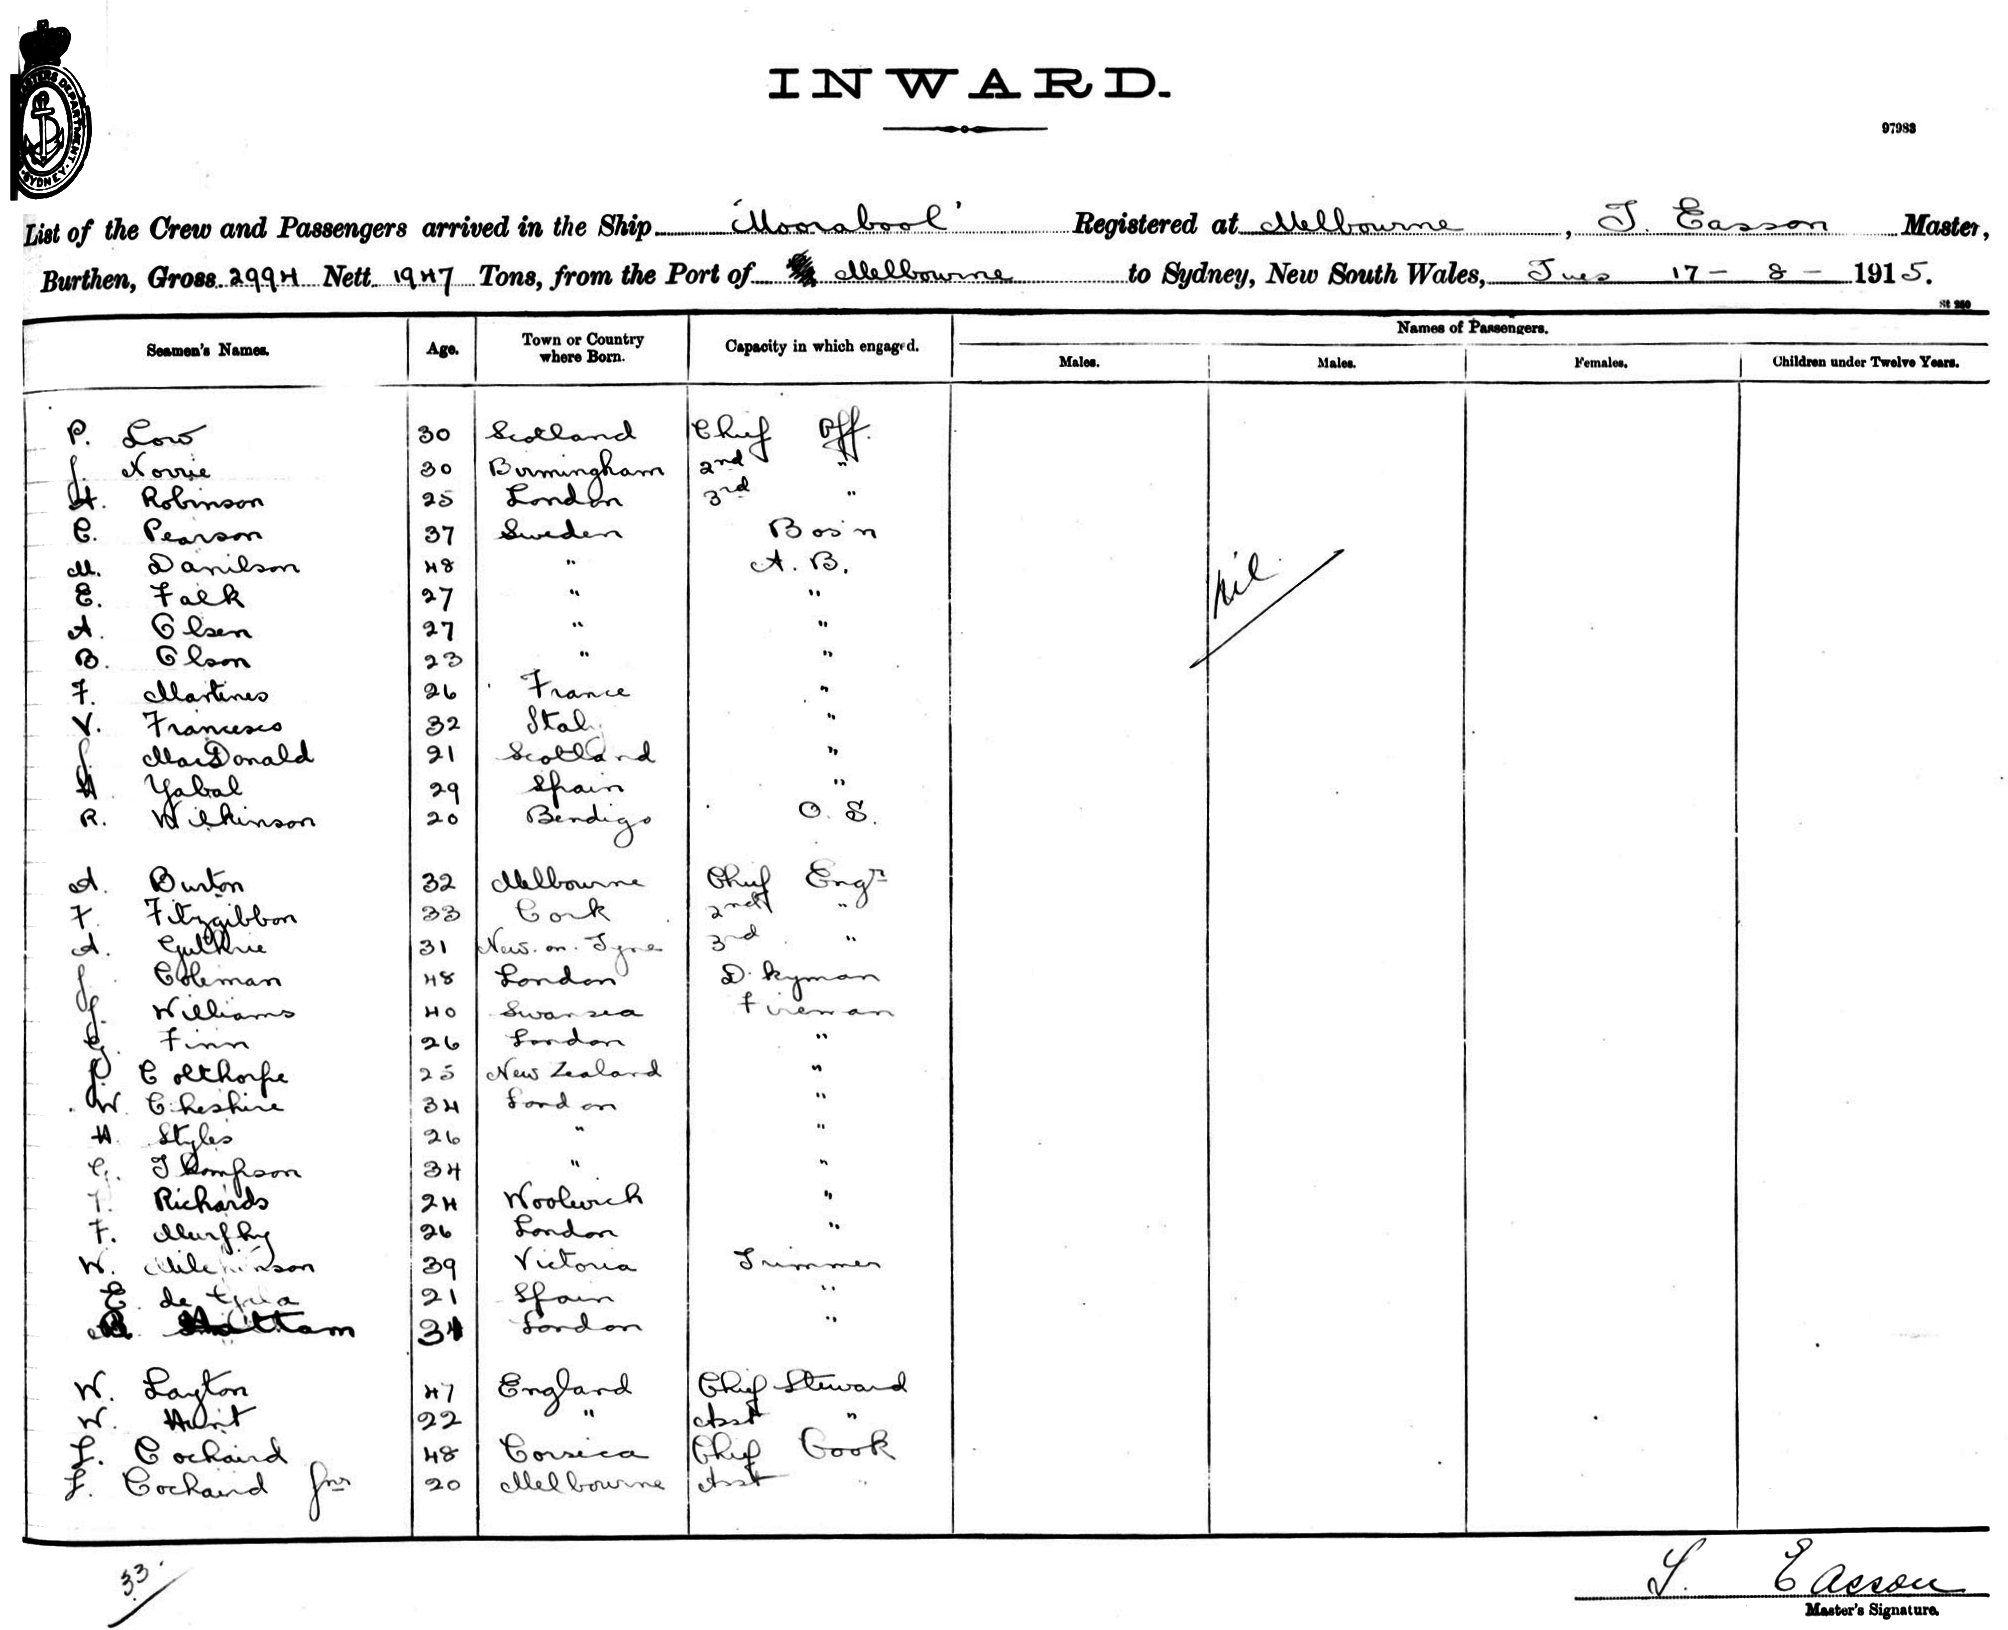 INWARD.
97983
MASTERS DEPARTMENT SYDNEY
List of the Crew and Passengers arrived in the Ship 'Moorabool' Registered at Melbourne, T. Easson Master,
Burthen, Gross 2994 Nett 1947 Tons, from the Port of Melbourne to Sydney, New South Wales, Tues 17 - 8 - 1915.
St 260
Seamen's Names. Age. Town or Country where Born. Capacity in which engaged. Names of Passengers.
Males. Males. Females. Children under Twelve Years.
P. Low 30 Scotland Chief Off.
J. Norrie 30 Birmingham 2nd "
H. Robinson 25 London 3rd "
C. Pearson 37 Sweden Bos'n
M. Danilson 48 " A. B.
E. Falk 27 " "
A. Olsen 27 " "
B. Olson 23 " "
F. Martines 26 France "
V. Francesco 32 Italy "
J. MacDonald 21 Scotland "
H Yabal 29 Spain "
R. Wilkinson 20 Bendigo O. S.
nil
A. Burton 32 Melbourne Chief Engr
F. Fitzgibbon 33 Cork 2nd "
A. Guthrie 31 New. on. Tyne 3rd "
J. Coleman 48 London D. kyman
G. Williams 40 Swansea Fireman
G. Finn 26 London "
P. Colthorpe 25 New Zealand "
W. Cheshire 34 London "
H. Styles 26 " "
G. Thompson 34 " "
T. Richards 24 Woolwich "
F. Murphy 26 London "
W. 39 Victoria Trimmer
E. de 21 Spain "
34 London "
W. Layton 47 England Chief Steward
W. Hunt 22 " Asst "
L. Cochaird 48 Corsica Chief Cook
L. Cochaird Jnr 20 Melbourne Asst "
33.
T. Easson
Master's Signature.